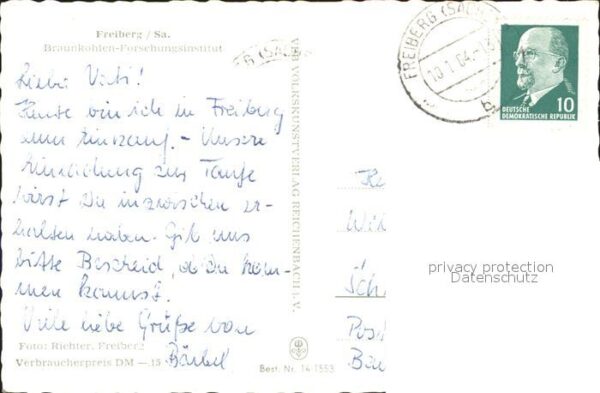 Freiberg / Sa.
Braunkohlen-Forschungsinstitut
Lieber Vati!
Heute bin ich in Freiberg
zum Einkauf. – Unsere
Einladung zur Taufe
wirst Du inzwischen er-
halten haben. Gib uns
bitte Bescheid, ob Du kom-
men kannst.
Viele liebe Grüße von
Bärbel
Foto: Richter, Freiberg
Verbraucherpreis DM —.15
VEB VOLKSKUNSTVERLAG REICHENBACH i. V.
Best. Nr. 14 1553
FREIBERG (SACHS)
10.1.64.-13
b
10
DEUTSCHE
DEMOKRATISCHE REPUBLIK
privacy protection
Datenschutz